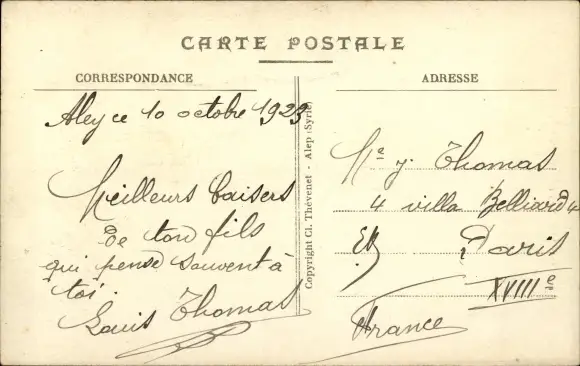 CARTE POSTALE
CORRESPONDANCE
Aley ce 10 octobre 1923
Meilleurs baisers
de ton fils
qui pense souvent à
toi.
Louis Thomas
Copyright Cl. Thévenet - Alep (Syrie)
ADRESSE
Me J. Thomas
4 villa Belliard 4
Paris
XVIIIe
France